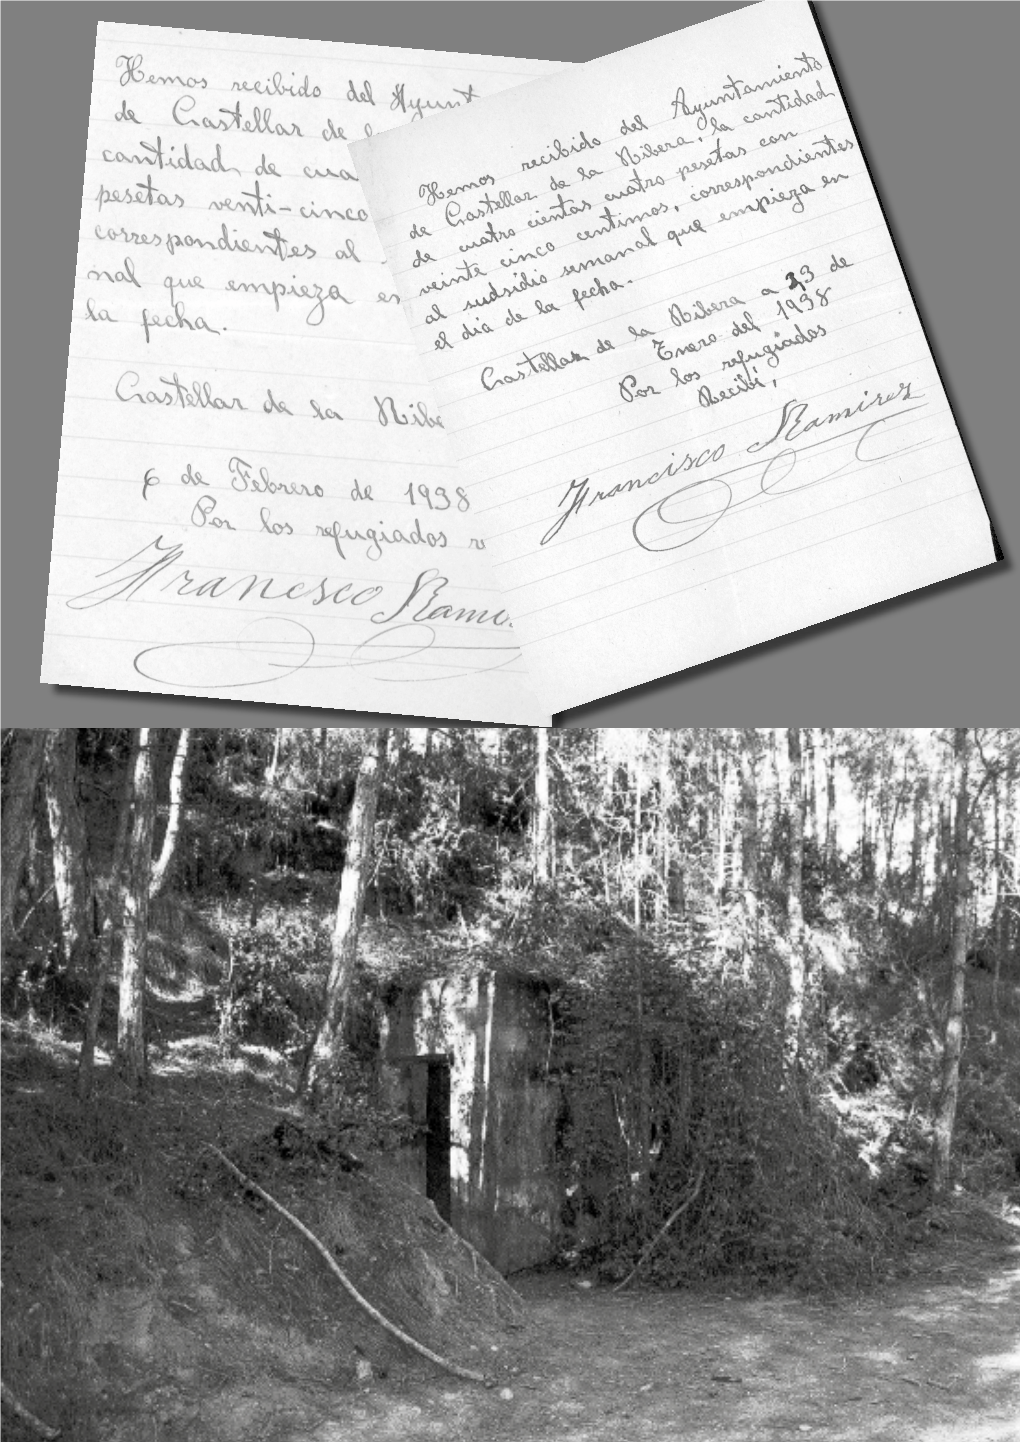 Hemos recibido del Ayunt
de Castellar de l
cantidad de cua
pesetas venti-cinco
correspondientes al
nal que empieza en
la fecha.
Castellar de la Ribe
6 de Febrero de 1938
Por los refugiados r
Francisco Rami
Hemos recibido del Ayuntamiento
de Castellar de la Ribera, la cantidad
de cuatro cientas cuatro pesetas con
veinte cinco centimos, correspondientes
al sudsidio semanal que empieza en
el dia de la fecha.
Castellar de la Ribera a 23 de
Enero del 1938
Por los refugiados
Recibi,
Francisco Ramirez